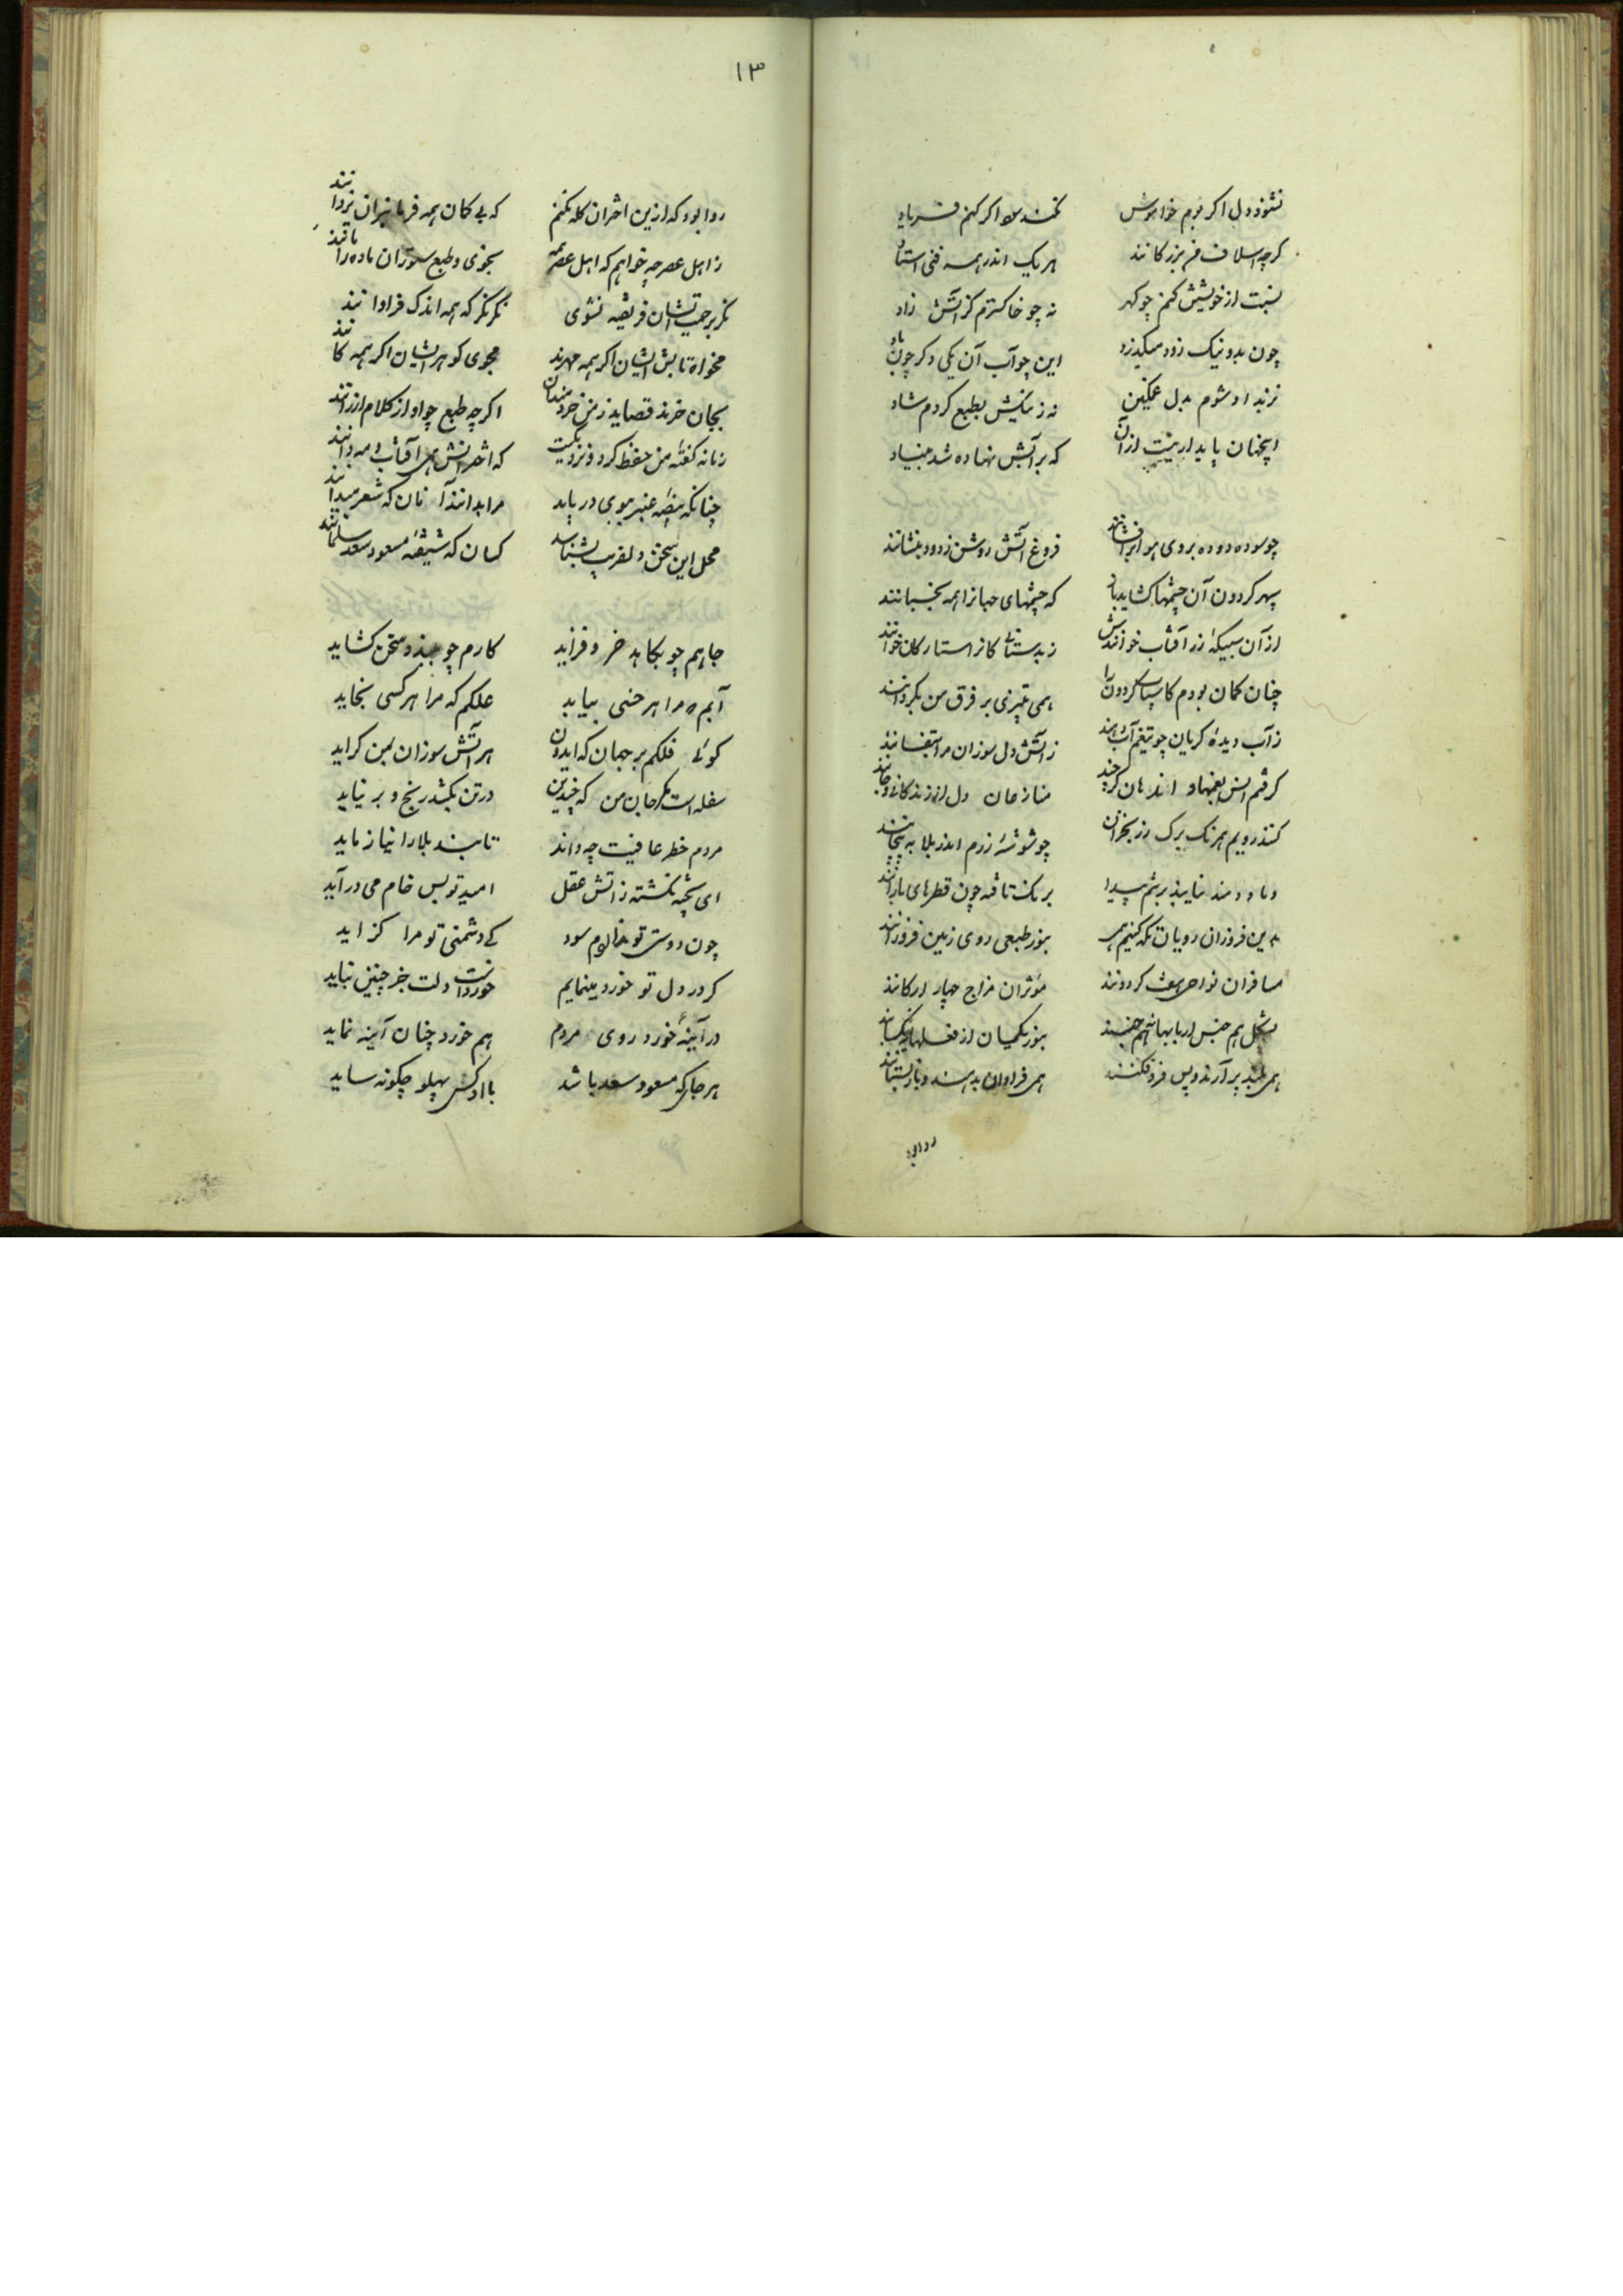 نشود دل اکر بوم خاموش نکند سود اکر کنم فریاد
کرچه اسلاف من بزرکانند هر یک اندر همه فنی استاد
نسبت از خویشتن کنم چو کهر نه چو خاکسترم کز آتش زاد
چون بد و نیک زود میکذرد این چو آب آن یکی دکر چون باد
نز بد او شوم بدل غمکین نه ز نیکیش بطبع کردم شاد
اینچنان پایدار نیست ازان که بر آتش نهاده شد بنیاد
چو سوده دوده بروی هوا برافشانند فروغ آتش روشن ز دود بنشانند
سپهر کردون آن چشمها کشاید باز که چشمهای جهانرا همه بخسبانند
از آن سبیکه زر آفتاب خوانندش زبد ستارکان خوانند
چنان کمان بودم کاسیای کردونرا همی بتیزی بر فرق من بکردانند
ز آب دیده کریان چو تیغم آب دهند ز آتش دل سوزان مرا بتفسانند
کرفتم انس بغمها و اندهان کرچند منازعان دل از زندکانی و جانند
کنند رویم همرنک برک رز بخزان چو شوشه زرم اندر بلا به پیچانند
دمادمند نایند برتنم پیدا بریک تافته چون قطرهای بارانند
بدین فروزان رویان نکه کنیم همی بنور طبعی روی زمین فروزانند
مسافران نواحی هفت کردونند مؤثران مزاج چهار ارکانند
بشکل هم جنس از بابها نه هم جنسند بنور یکسان از فعلها نه یکسانند
همی بلند برآرند و پس فرو فکنند همی فراوان بدهند و باز بستانند
روا بود
۱۳
روا بود که ازین اختران کله نکنم که بی کمان همه فرمانبران یزدانند
ز اهل عصر چه خواهم که اهل عصر همه بخوی و طبع ستوران ماده را مانند
نکر برحمت ایشان فریفته نشوی نکر نکر که همه اندک فراوانند
مخواه تابش ایشان اکر همه مهرند مجوی کوهر ایشان اکر همه کانند
بجان خرند قصاید ز من خردمندان اکرچه طبع چو او از کلام ارزانند
زمانه کفته من حفظ کرد و نزدیکست که اخترانش بر آفتاب و مه خوانند
چنانکه بیضه عنبر ببوی دریابد مرا بدانند آنان که شعر میدانند
محل این سخن دلفریب بشناسد کسان که شیفته مسعود سعد سلمانند
جاهم چو بکاهد خرد فزاید کارم چو ببندد سخن کشاید
آبم نه مرا هر خسی بیابد علکم که مرا هر کسی بخاید
کوئی فلکم بر جهان که ایدون هر آتش سوزان بمن کراید
سفله است مکر جان من که چندین در تن بکشد رنج و بر نیاید
مردم خطر عافیت چه داند تا بند بلا را نیازماید
ای پخته نکشته ز آتش عقل امید تو بس خام می درآید
چون دوستی تو نداردم سود کی دشمنی تو مرا کزاید
کر در دل تو خورد مینمایم خورد است دلت جز چنین نباید
در آینه خورد روی مردم هم خورد چنان آینه نماید
هر جا که مسعود سعد باشد با او کس پهلو چکونه ساید